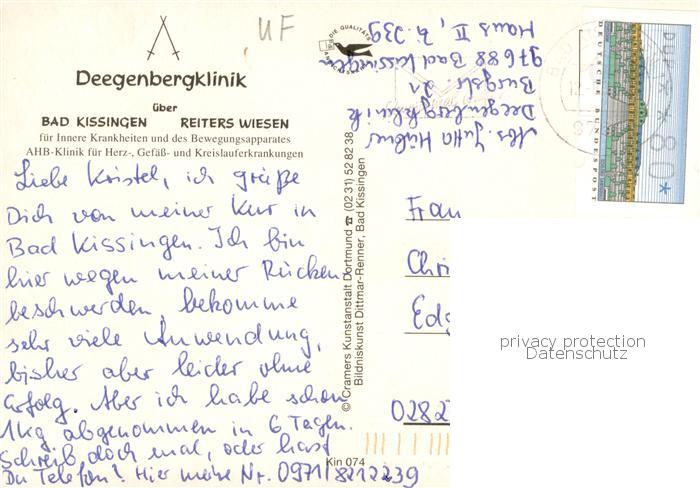 UF
Deegenbergklinik
über
BAD KISSINGEN REITERS WIESEN
für Innere Krankheiten und des Bewegungsapparates
AHB-Klinik für Herz-, Gefäß- und Kreislauferkrankungen
Liebe Kristel, ich grüße
Dich von meiner Kur in
Bad Kissingen. Ich bin
hier wegen meiner Rücken
beschwerden, bekomme
sehr viele Anwendung,
bisher aber leider ohne
Erfolg. Aber ich habe schon
1kg abgenommen in 6 Tagen.
Schreib doch mal, oder hast
Du Telefon? Hier meine Nr. 0971/8212239
© Cramers Kunstanstalt Dortmund ☎ (0231) 52 82 38
Bildniskunst Dittmar-Renner, Bad Kissingen
Kin 074
DIE QUALITÄTS
Abs. Jutta Hübner
Deegenbergklinik
Burgstr. 21
97688 Bad Kissingen
Haus II, Zi. 239
DEUTSCHE BUNDESPOST
80
Frau
Chri
Edg
0282
privacy protection
Datenschutz